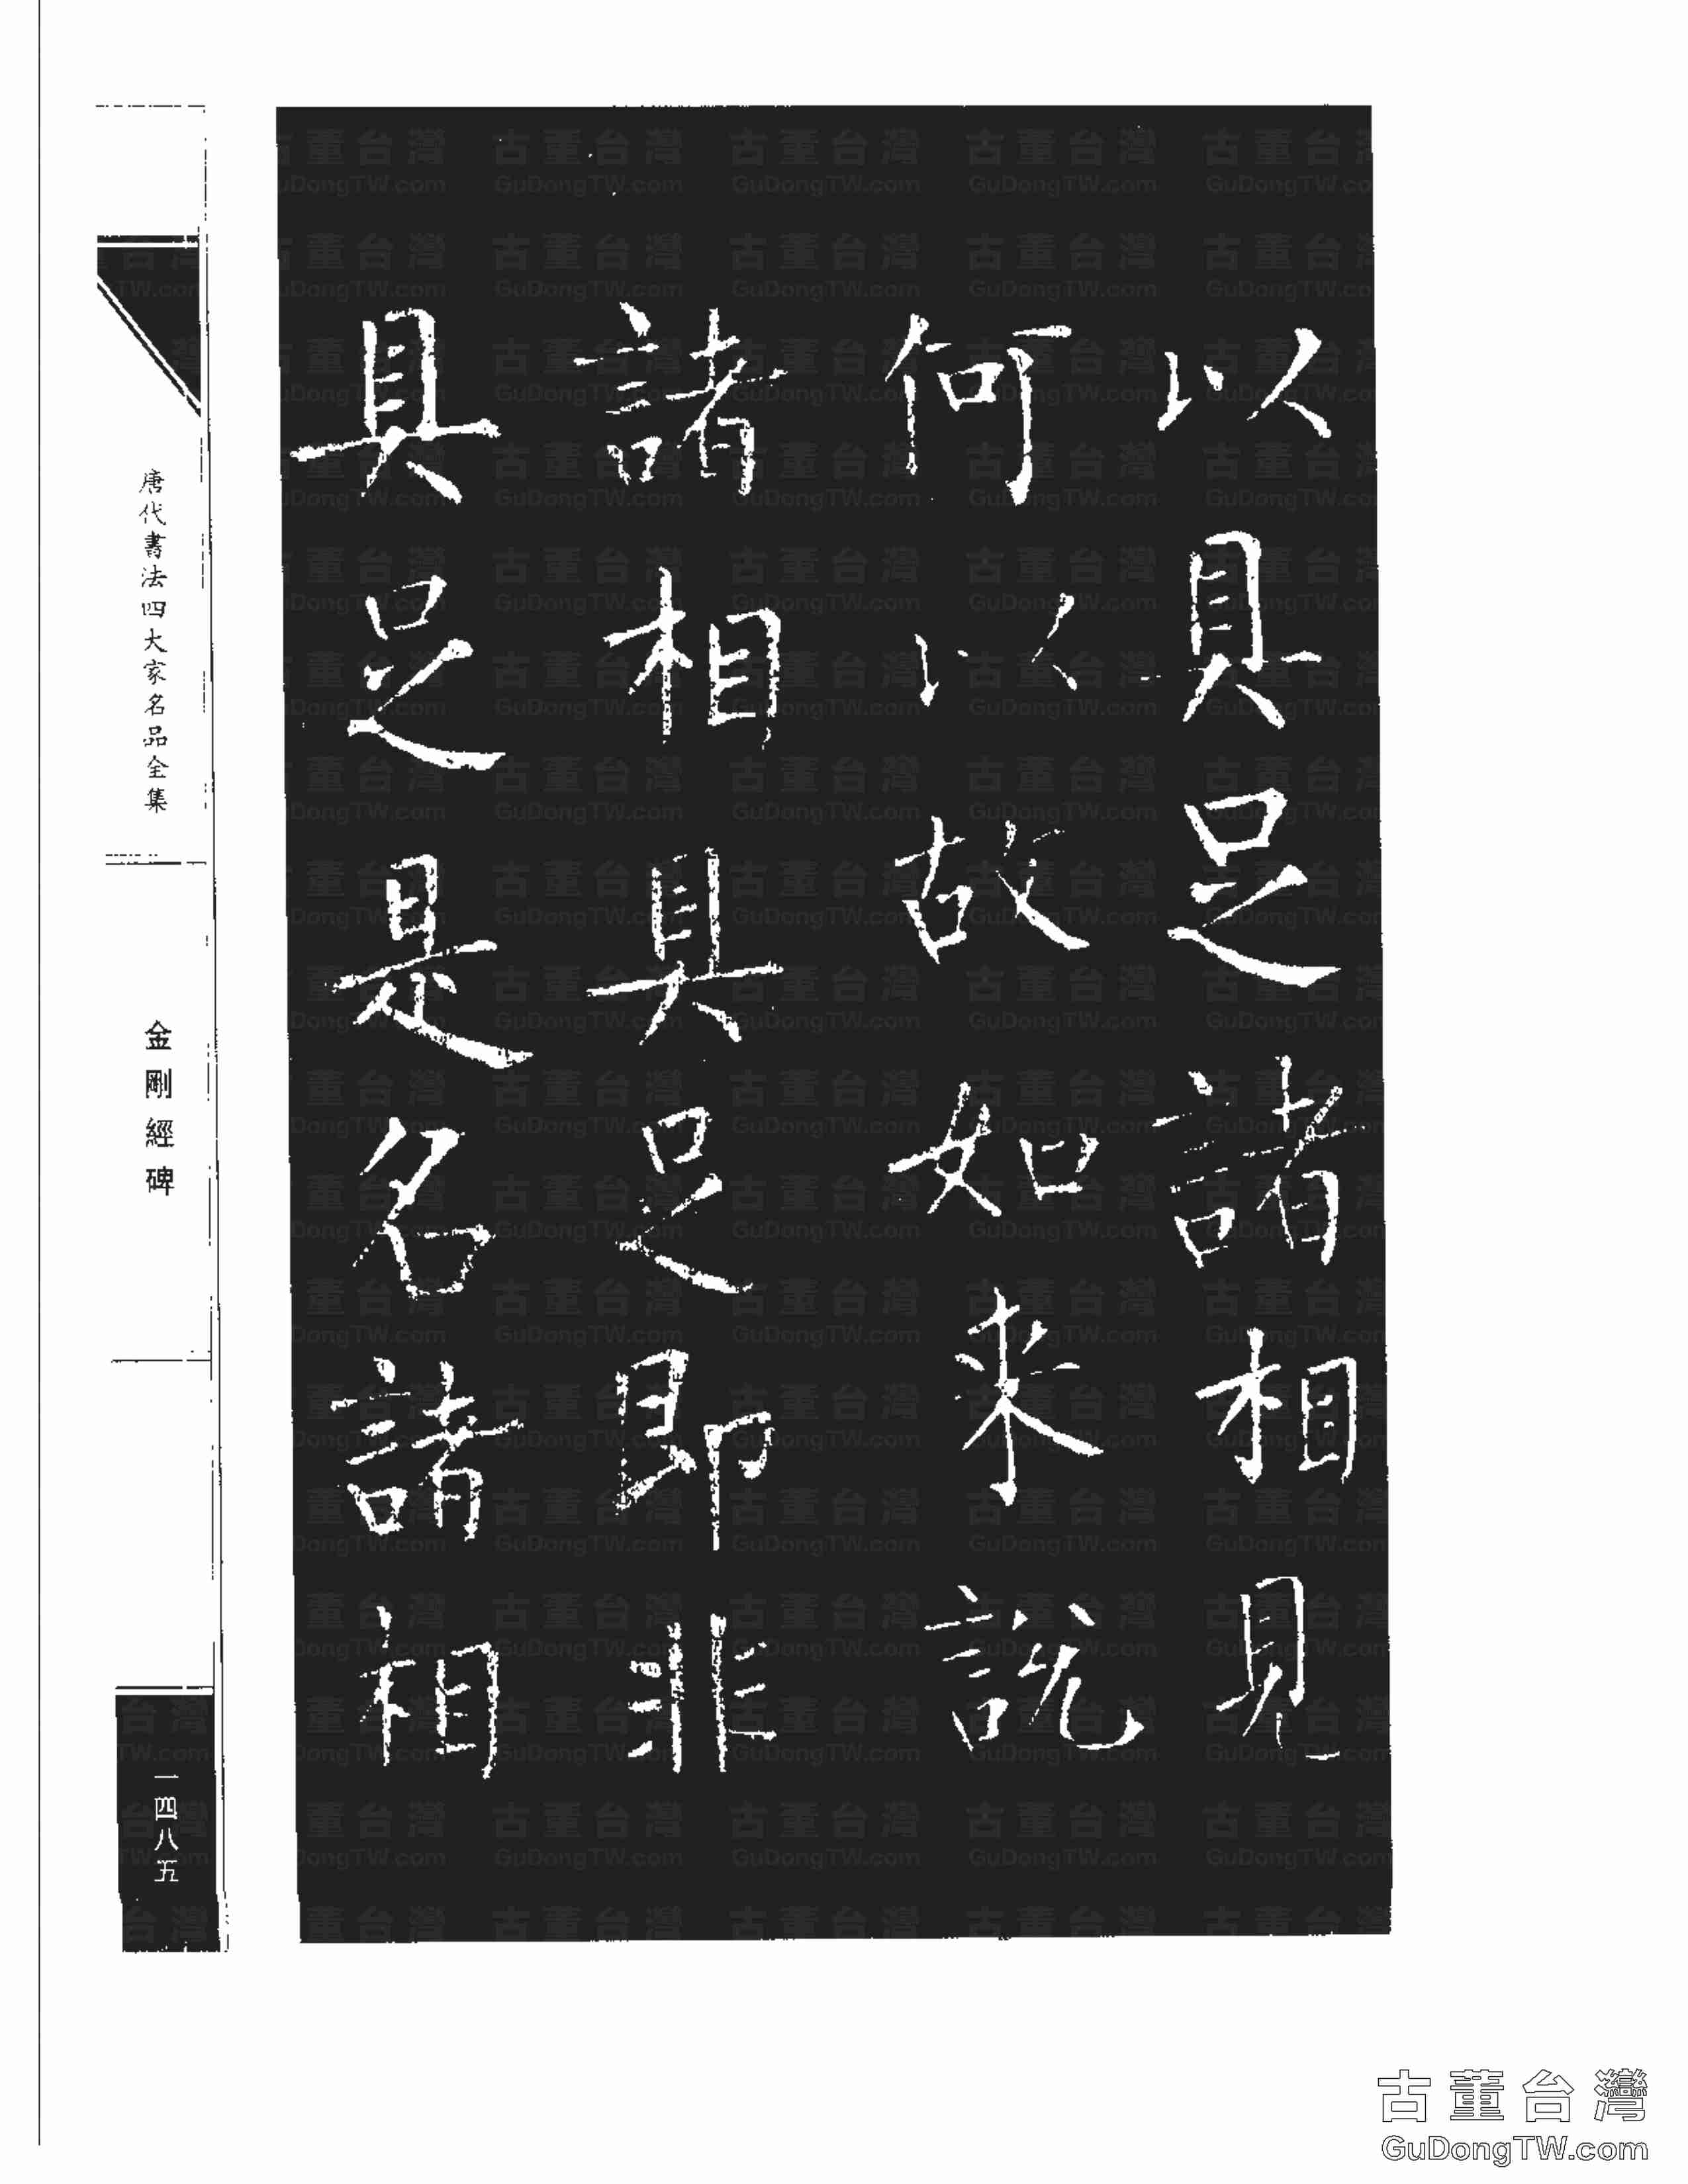 以具足諸相見
何以故如来說
諸相具足即非
具足是名諸相
唐代書法四大家名品全集
金剛經碑
一四八五
古董台灣
GuDongTW.com